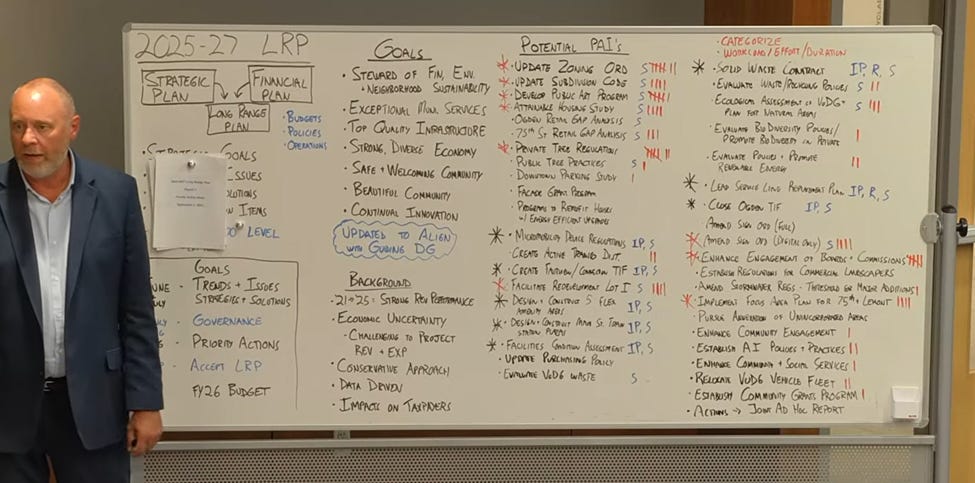 2025-27 LRP
STRATEGIC PLAN
FINANCIAL PLAN
LONG RANGE PLAN
• BUDGETS
• POLICIES
• OPERATIONS
GOALS
ISSUES
ITEMS
LEVEL
GOALS
TRENDS + ISSUES
STRATEGIES + SOLUTIONS
- GOVERNANCE
- PRIORITY ACTIONS
- ACCEPT LRP
FY26 BUDGET
GOALS
• STEWARD OF FIN, ENV.
+ NEIGHBORHOOD SUSTAINABILITY
• EXCEPTIONAL MUN. SERVICES
• TOP QUALITY INFRASTRUCTURE
• STRONG, DIVERSE ECONOMY
• SAFE + WELCOMING COMMUNITY
• BEAUTIFUL COMMUNITY
• CONTINUAL INNOVATION
UPDATED TO ALIGN
WITH GUIDING DG
BACKGROUND
• 21-25: STRONG REV PERFORMANCE
• ECONOMIC UNCERTAINTY
• CHALLENGING TO PROJECT
REV + EXP
• CONSERVATIVE APPROACH
• DATA DRIVEN
• IMPACTS ON TAXPAYERS
POTENTIAL PAI's
• UPDATE ZONING ORD S
• UPDATE SUBDIVISION CODE S
• DEVELOP PUBLIC ART PROGRAM S
• ATTAINABLE HOUSING STUDY S
• OGDEN RETAIL GAP ANALYSIS S
• 75th ST. RETAIL GAP ANALYSIS S
• PRIVATE TREE REGULATIONS
• PUBLIC TREE PRACTICES S
• DOWNTOWN PARKING STUDY
• FACADE GRANT PROGRAM
• PROGRAMS TO RETROFIT HOUSES
W/ ENERGY EFFICIENT UPGRADES
• MICROMOBILITY DEVICE REGULATIONS IP, S
• CREATE ACTIVE TRANSP. DIST.
• CREATE FAIRVIEW/ TIF IP, S
• FACILITATE REDEVELOPMENT LOT I S
• DESIGN + CONSTRUCT S FLEX
AMENITY AREAS IP, S
• DESIGN + CONSTRUCT MAIN ST. TRAIN
STATION PLAZAS IP, S
• FACILITIES CONDITION ASSESSMENT IP, S
• UPDATE PURCHASING POLICY
• EVALUATE VoDG WASTE S
• CATEGORIZE
• WORKLOAD/EFFORT/DURATION
• SOLID WASTE CONTRACT IP, R, S
• EVALUATE WASTE/RECYCLING POLICIES S
• ECOLOGICAL ASSESSMENT OF VoDG + S
PLAN FOR NATURAL AREAS
• EVALUATE BIODIVERSITY POLICIES/
PROMOTE BIODIVERSITY IN PRIVATE
• EVALUATE POLICIES + PROMOTE
RENEWABLE ENERGY
• LEAD SERVICE LINE REPLACEMENT PLAN IP, R, S
• CLOSE OGDEN TIF IP, S
• AMEND SIGN ORD (FULL)
• AMEND SIGN ORD (DIGITAL ONLY) S
• ENHANCE ENGAGEMENT OF BOARDS + COMMISSIONS
• ESTABLISH REGULATIONS FOR COMMERCIAL LANDSCAPERS
• AMEND STORMWATER REGS - THRESHOLD FOR MAJOR ADDITIONS
• IMPLEMENT FOCUS AREA PLAN FOR 75th + LEMONT
• PURSUE ANNEXATION OF UNINCORPORATED AREAS
• ENHANCE COMMUNITY ENGAGEMENT
• ESTABLISH AI POLICIES + PRACTICES
• ENHANCE COMMUNITY + SOCIAL SERVICES
• RELOCATE VoDG VEHICLE FLEET
• ESTABLISH COMMUNITY GRANTS PROGRAM
• ACTIONS → JOINT AD HOC REPORT